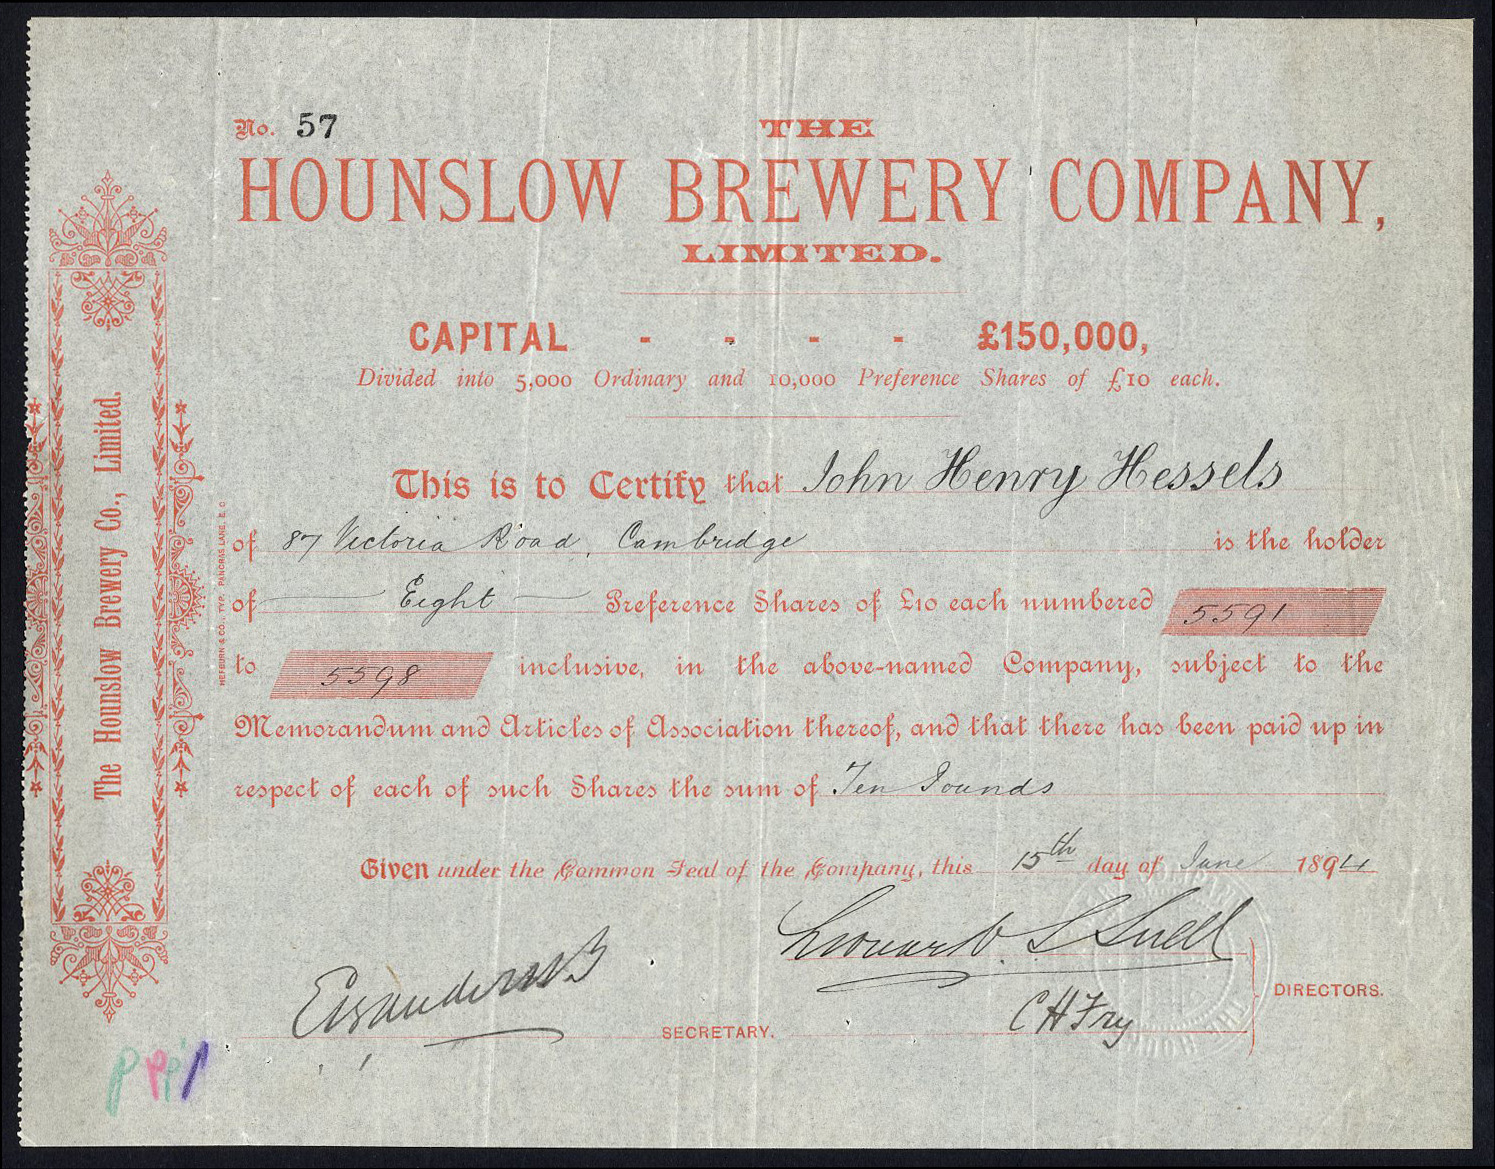 No. 57
THE
HOUNSLOW BREWERY COMPANY,
LIMITED.
CAPITAL - - - - £150,000,
Divided into 5,000 Ordinary and 10,000 Preference Shares of £10 each.
This is to Certify that John Henry Hessels
of 87 Victoria Road, Cambridge is the holder
of Eight Preference Shares of £10 each numbered 5591
to 5598 inclusive, in the above-named Company, subject to the
Memorandum and Articles of Association thereof, and that there has been paid up in
respect of each of such Shares the sum of Ten Pounds
Given under the Common Seal of the Company, this 15th day of June 1894
Leonard L Snell
C H Fry
DIRECTORS.
SECRETARY.
The Hounslow Brewery Co., Limited.
HEPBURN & CO., TYP. PANCRAS LANE, E.C